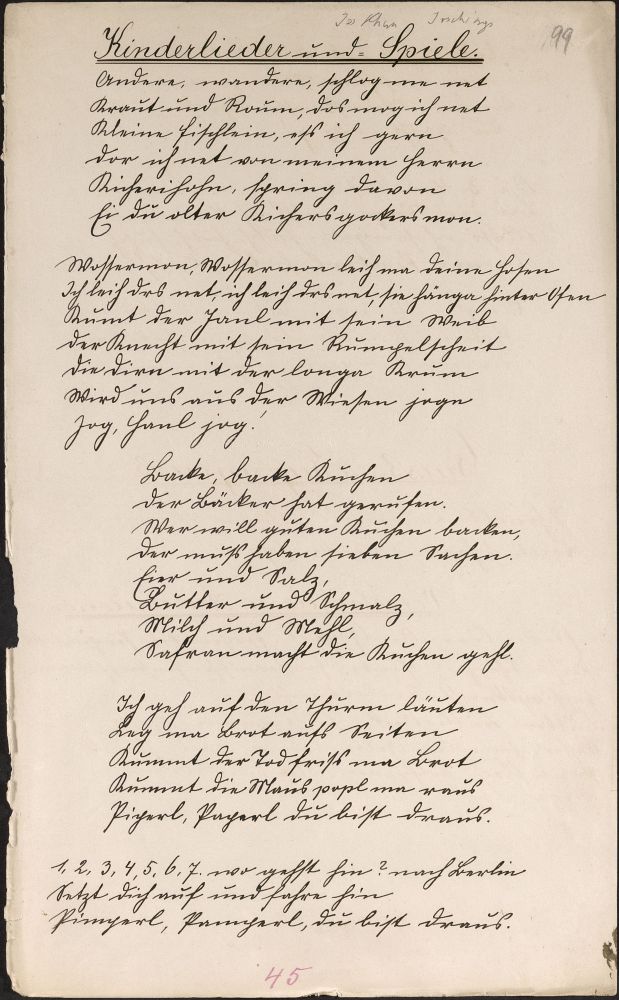 99
Kinderlieder und Spiele.
Andere, wandere, schlog me net
Kraut und Roum, dos mog ich net
Kleine Fischlein, ess ich gern
Dor ich net von meinem Herrn
Kicherihohn, spring davon
Ei du olter Kichersgockersmon.
Wossermon, Wossermon leih ma deine Hosen
Ich leih drs net, ich leih drs net, sie hänga hinter Ofen
Kumt der Hanl mit sein Weib
Der Knecht mit sein Rumpelscheit
Die Dirn mit der longa Krum
Wird uns aus der Wiesen jogn
Jog, Hanl jog.
Backe, backe Kuchen
Der Bäcker hat gerufen.
Wer will guten Kuchen backen,
Der muss haben sieben Sachen.
Eier und Salz,
Butter und Schmalz,
Milch und Mehl,
Safran macht die Kuchen gehl.
Ich geh auf den Thurm läuten
Leg ma Brot aufs Seiten
Kummt der Tod friss ma Brot
Kummt die Maus popl ma raus
Piperl, Paperl du bist draus.
1, 2, 3, 4, 5, 6, 7. wo gehst hin? nach Berlin
Setzt dich auf und fahre hin
Pimperl, Pamperl, du bist draus.
45